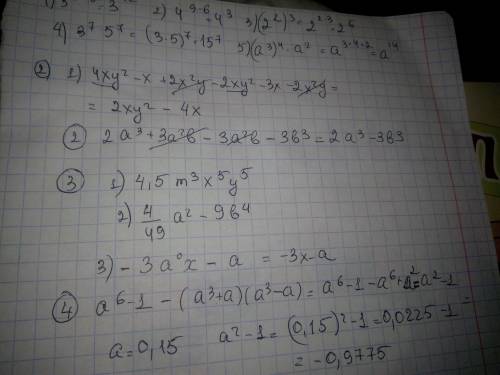 2) 4⁹⁻⁶ = 4³ 3) (2²)³ = 2²·³ = 2⁶
4) 3⁷ 5⁷ = (3·5)⁷ = 15⁷ 5) (a³)⁴ · a² = a³·⁴⁺² = a¹⁴
② 1) 4xy² - x + 2x²y - 2xy² - 3x - 2x²y =
= 2xy² - 4x
② 2a³ + 3a²b - 3a²b - 3b³ = 2a³ - 3b³
③ 1) 4,5 m³x⁵y⁵
2) 4/49 a² - 9b⁴
3) - 3a⁰x - a = -3x - a
④ a⁶ - 1 - (a³+a)(a³-a) = a⁶ - 1 - a⁶ + a² = a² - 1
a = 0,15 a² - 1 = (0,15)² - 1 = 0,0225 - 1 =
= - 0,9775